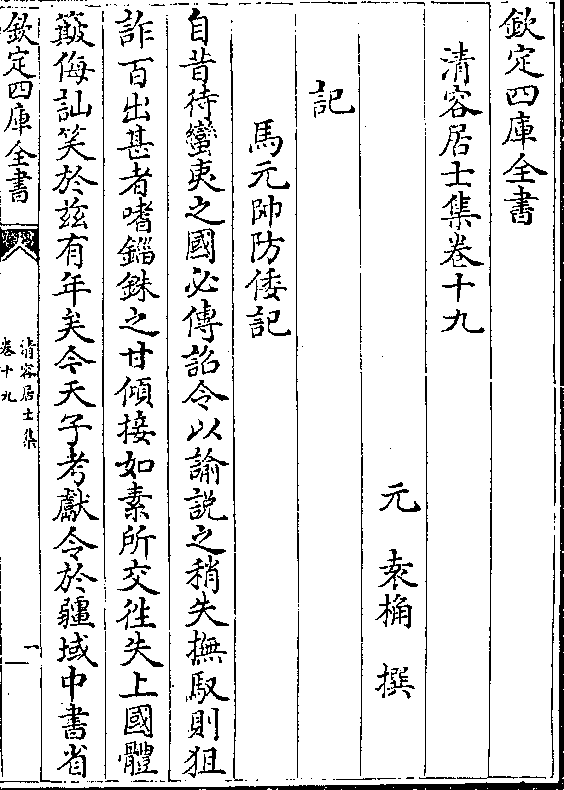 欽定四庫全書
清容居士集卷十九
元 袁桷 撰
記
馬元帥防倭記
自昔待蠻夷之國必傳詔令以諭説之稍失撫馭則狙
詐百出甚者嗜錙銖之甘傾接如素所交徃失上國體
簸侮訕笑於兹有年矣今天子考獻令於疆域中書省
欽定四庫全書
清容居士集
卷十九
一